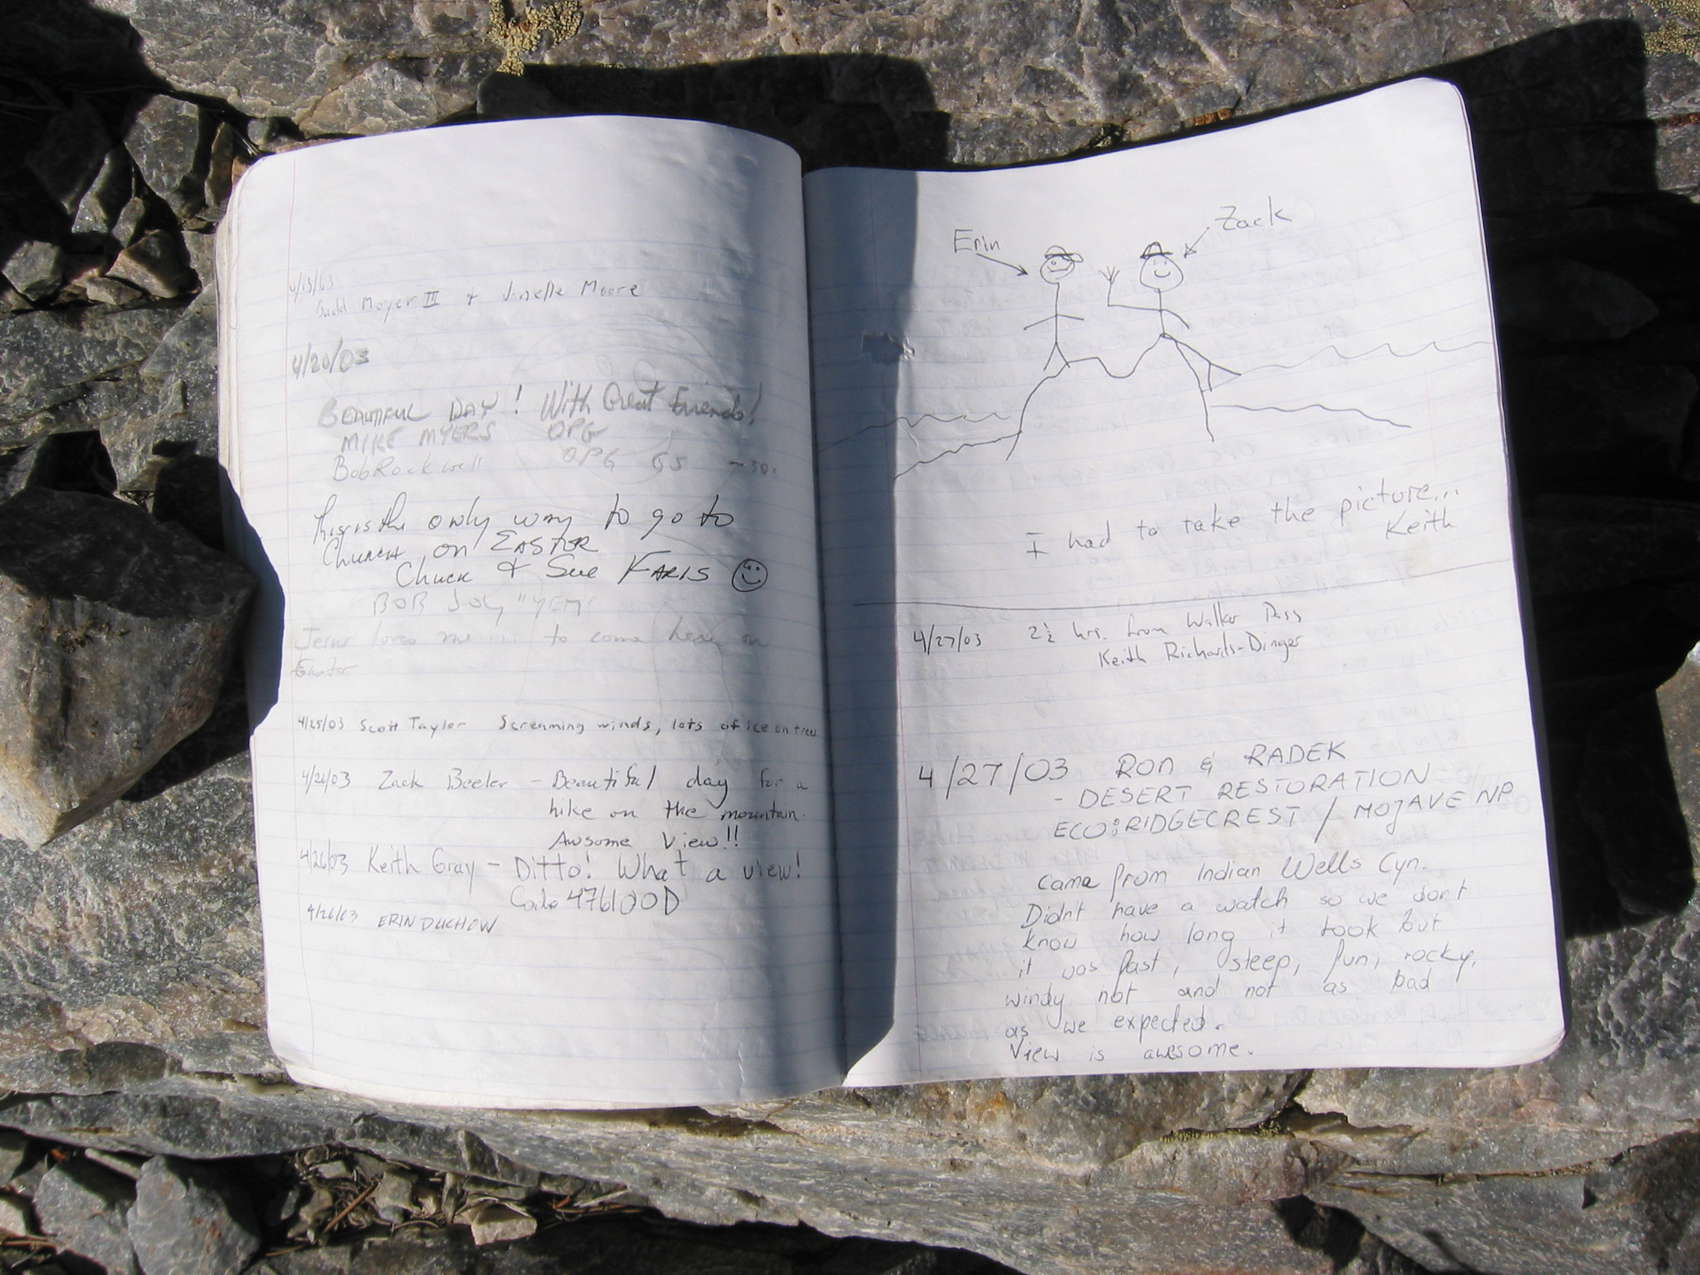 4/13/03
Moyer III + Moore
4/20/03
BEAUTIFUL DAY! With Great Friends!
MIKE MYERS OPG
Bob Rockwell OPG GS
This is the only way to go to
Church on EASTER
Chuck & Sue FARIS
BOB JOY "YEM"
Jesus loves me to come here on
Easter
4/25/03 Scott Taylor Screaming winds, lots of ice on trees
4/26/03 Zack Beeler - Beautiful day for a
hike on the mountain.
Awsome View!!
4/26/03 Keith Gray - Ditto! What a view!
4/26/03 ERIN DUCHOW
Erin
Zack
I had to take the picture...
Keith
4/27/03 2½ hrs. from Walker Pass
Keith Richards-Dinger
4/27/03 RON & RADEK
- DESERT RESTORATION
ECO: RIDGECREST / MOJAVE NP
came from Indian Wells Cyn.
Didn't have a watch so we don't
know how long it took but
it was fast, steep, fun, rocky,
windy not and not as bad
as we expected.
View is awesome.